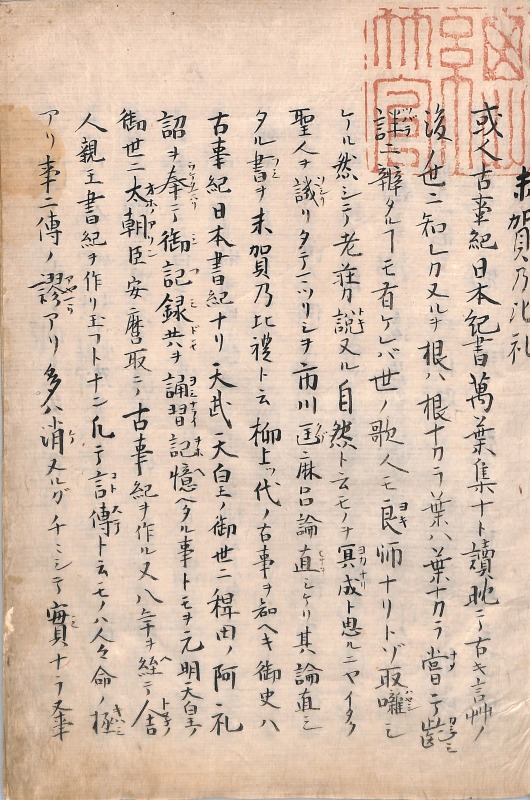 末賀乃比礼
或人古事紀日本紀書萬葉集ナト讀耽テ古キ言艸ノ
後ノ世ニ知レカヌルヲ根ハ根ナカラ葉ハ葉ナカラ嘗テ齒
註ニ辨タルヿモ有ケレバ世ノ歌人モ良師ナリトゾ取囃シ
ケル然シテ老莊カ説ヌル自然ト云モノヲ冥成ト思ルニヤイタク
聖人ヲ譏リタテマツリシヲ市川匡麻呂論直シケリ其論直シ
タル書ヲ末賀乃比禮ト云柳上ツ代ノ古事ヲ知ヘキ御史ハ
古事紀日本書紀ナリ天武天皇ノ御世ニ稗田ノ阿礼
詔ヲ奉テ御記録共ヲ誦習記憶ヘタル事トモヲ元明天皇ノ
御世ニ太朝臣安麿取テ古事紀ヲ作ル又八年ヲ經テ舎
人親王書紀ヲ作リ玉フトナン凡テ言傳ト云モノハ人々命ノ極
アリ事ニ傳ノ謬アリ多ハ消ヌルガチニシテ實ナラヌ事